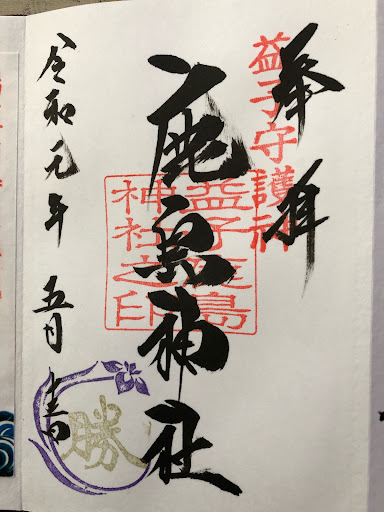 奉拝
益子守護神
鹿島神社
益子鹿島
神社之印
令和元年 五月
勝